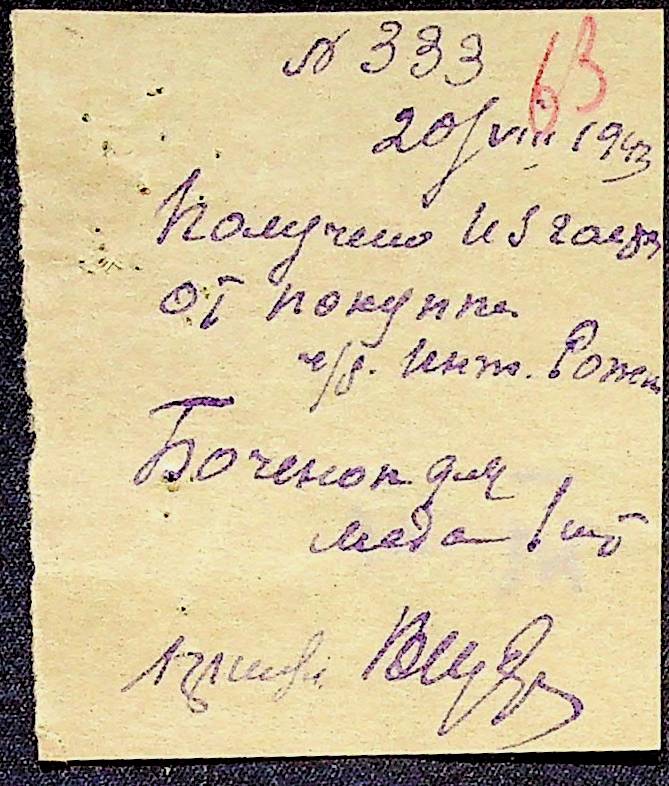 № 333
63
20/VIII 1943
Получено из
от покупк.
ч/б. Инт.
Боченок для
меда 1 шт